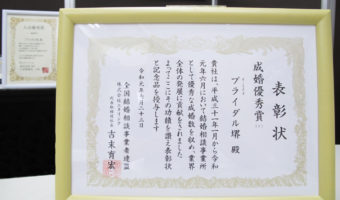 表彰状
成婚優秀賞
ブライダル堺 殿
貴社は、平成三十一年一月から令和
元年六月において結婚相談事業所
として優秀な成婚数を収め、業界
全体の発展に貢献をされました
よってここにその功績を讃え表彰状
と記念品を授与します
令和元年七月二十三日
全国結婚相談事業者連盟